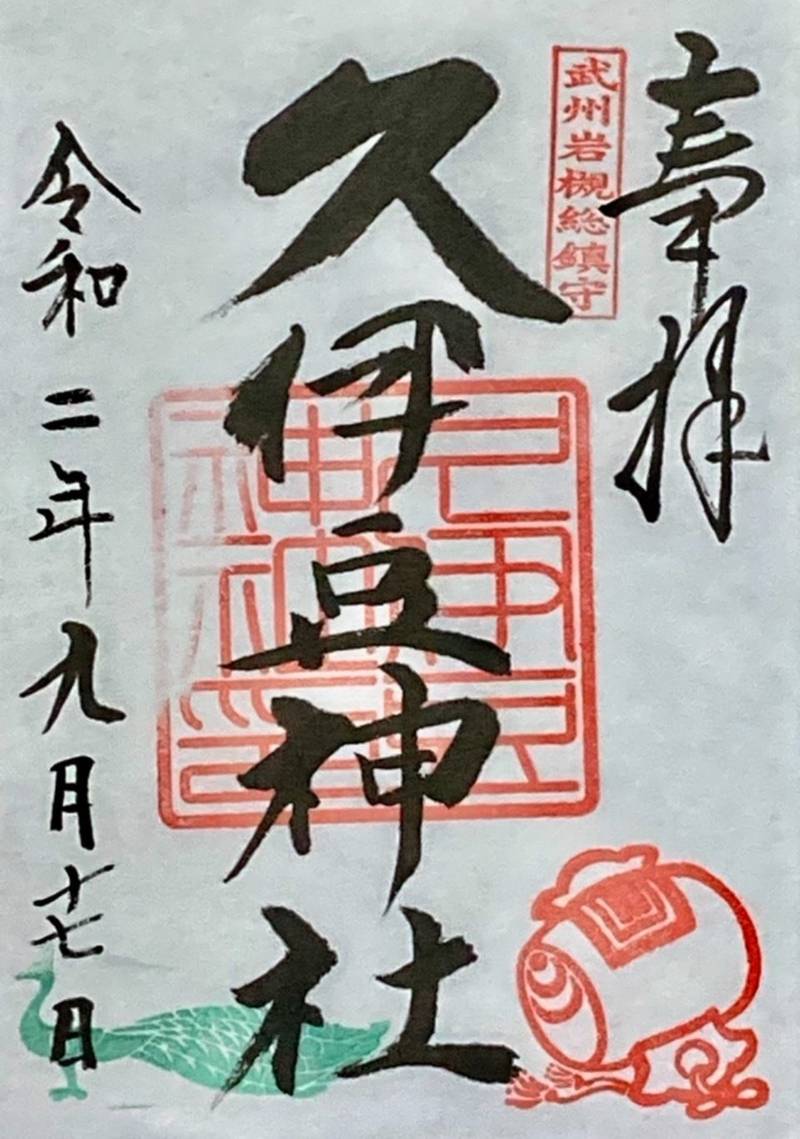 奉拝
武州岩槻総鎮守
久伊豆神社
令和二年九月十七日